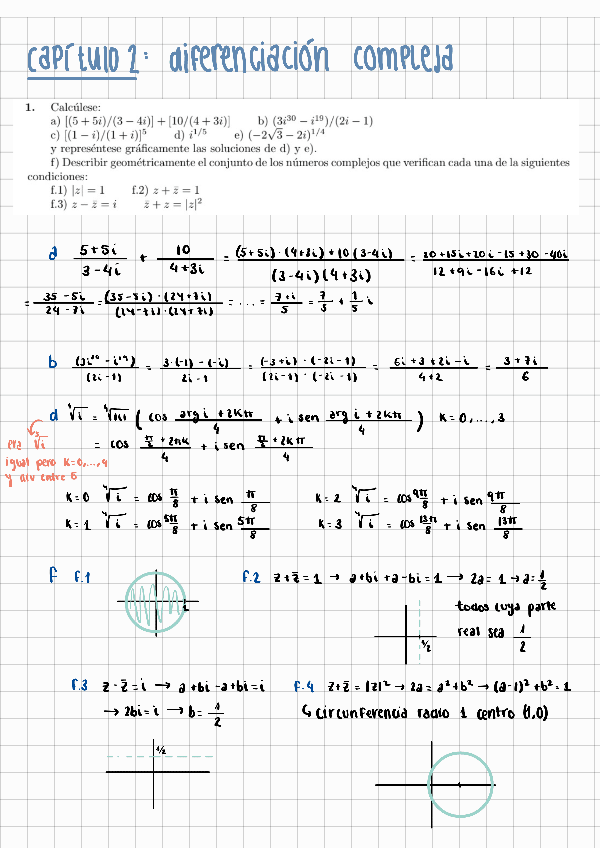 Capítulo 2: diferenciación compleja
1. Calcúlese:
a) [(5 + 5i)/(3 − 4i)] + [10/(4 + 3i)] b) (3i^30 − i^19)/(2i − 1)
c) [(1 − i)/(1 + i)]^5 d) i^{1/5} e) (−2√3 − 2i)^{1/4}
y represéntese gráficamente las soluciones de d) y e).
f) Describir geométricamente el conjunto de los números complejos que verifican cada una de la siguientes
condiciones:
f.1) |z| = 1 f.2) z + z̄ = 1
f.3) z − z̄ = i z̄ + z = |z|²
a (5+5i)/(3-4i) + 10/(4+3i) = ((5+5i)·(4+3i)+10(3-4i))/((3-4i)(4+3i)) = (20+15i+20i-15+30-40i)/(12+9i-16i+12)
= (35-5i)/(24-7i) = ((35-5i)·(24+7i))/((24-7i)·(24+7i)) = ... = (7+i)/5 = 7/5 + 1/5 i
b (3i^30 - i^19)/(2i-1) = (3·(-1)-(-i))/(2i-1) = ((-3+i)·(-2i-1))/((2i-1)·(-2i-1)) = (6i+3+2i-i)/(4+2) = (3+7i)/6
d ⁴√i = ⁴√|i| ( cos (arg i + 2kπ)/4 + i sen (arg i + 2kπ)/4 ) k=0,...,3
era ⁵√i
= cos (π/2 + 2πk)/4 + i sen (π/2 + 2kπ)/4
igual pero k=0,...,4
y div entre 5
k=0 ⁴√i = cos π/8 + i sen π/8 k=2 ⁴√i = cos 9π/8 + i sen 9π/8
k=1 ⁴√i = cos 5π/8 + i sen 5π/8 k=3 ⁴√i = cos 13π/8 + i sen 13π/8
f f.1 f.2 z+z̄=1 → a+bi+a-bi=1 → 2a=1 → a=1/2
1
todos cuya parte
real sea 1/2
1/2
f.3 z-z̄=i → a+bi-a+bi=i f.4 z+z̄=|z|² → 2a=a²+b² → (a-1)²+b²=1
→ 2bi=i → b=1/2 ↳ circunferencia radio 1 centro (1,0)
1/2